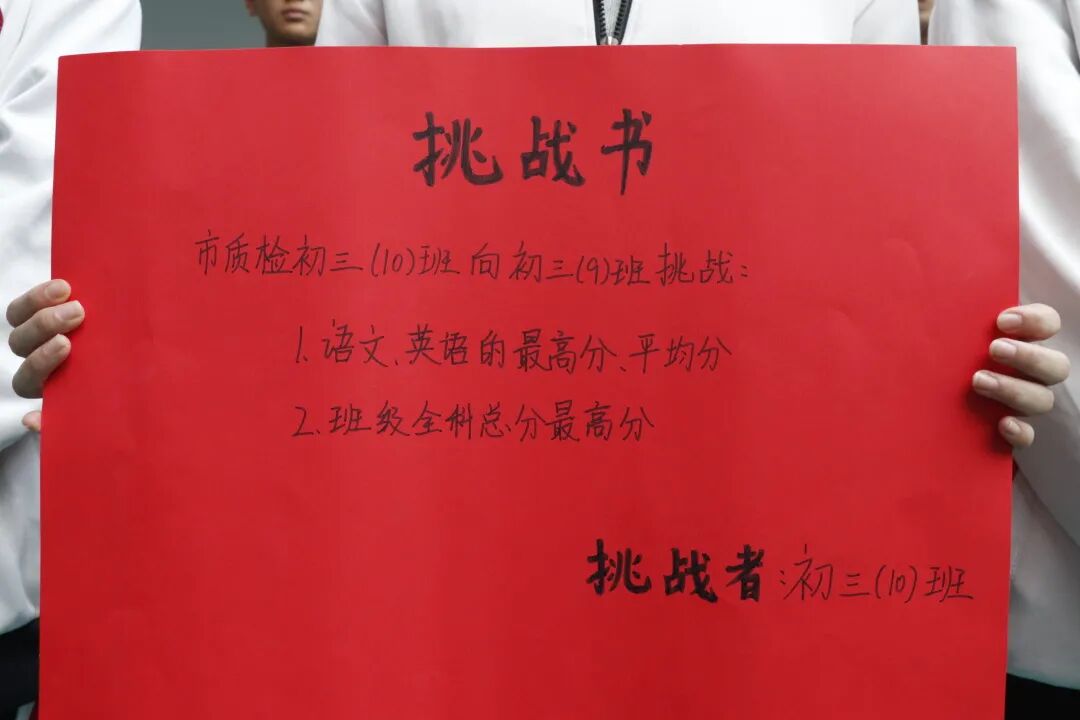 挑战书
市质检初三(10)班向初三(9)班挑战:
1.语文、英语的最高分、平均分
2.班级全科总分最高分
挑战者:初三(10)班